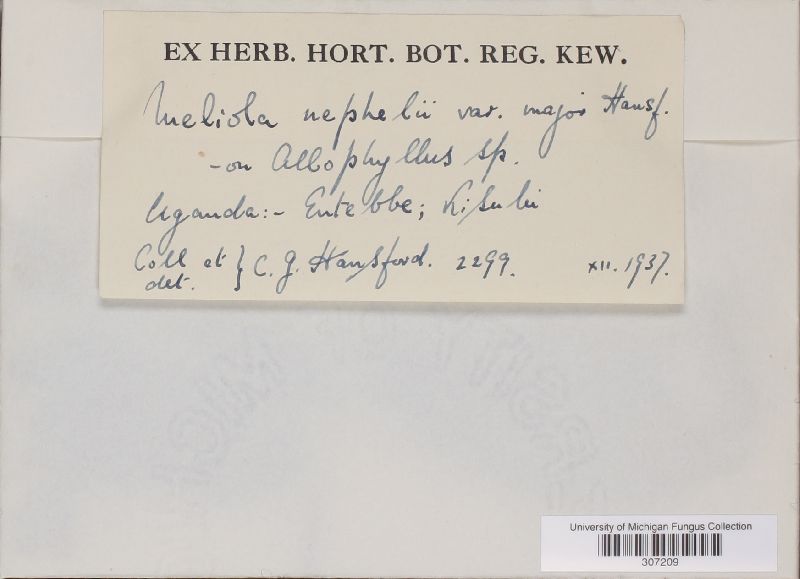 EX HERB. HORT. BOT. REG. KEW.
Meliola nephelii var. major Hansf.
- on Allophyllus sp.
Uganda:- Entebbe; Kisubi
Coll et } C. G. Hansford. 2299. XII. 1937.
det.
University of Michigan Fungus Collection
307209